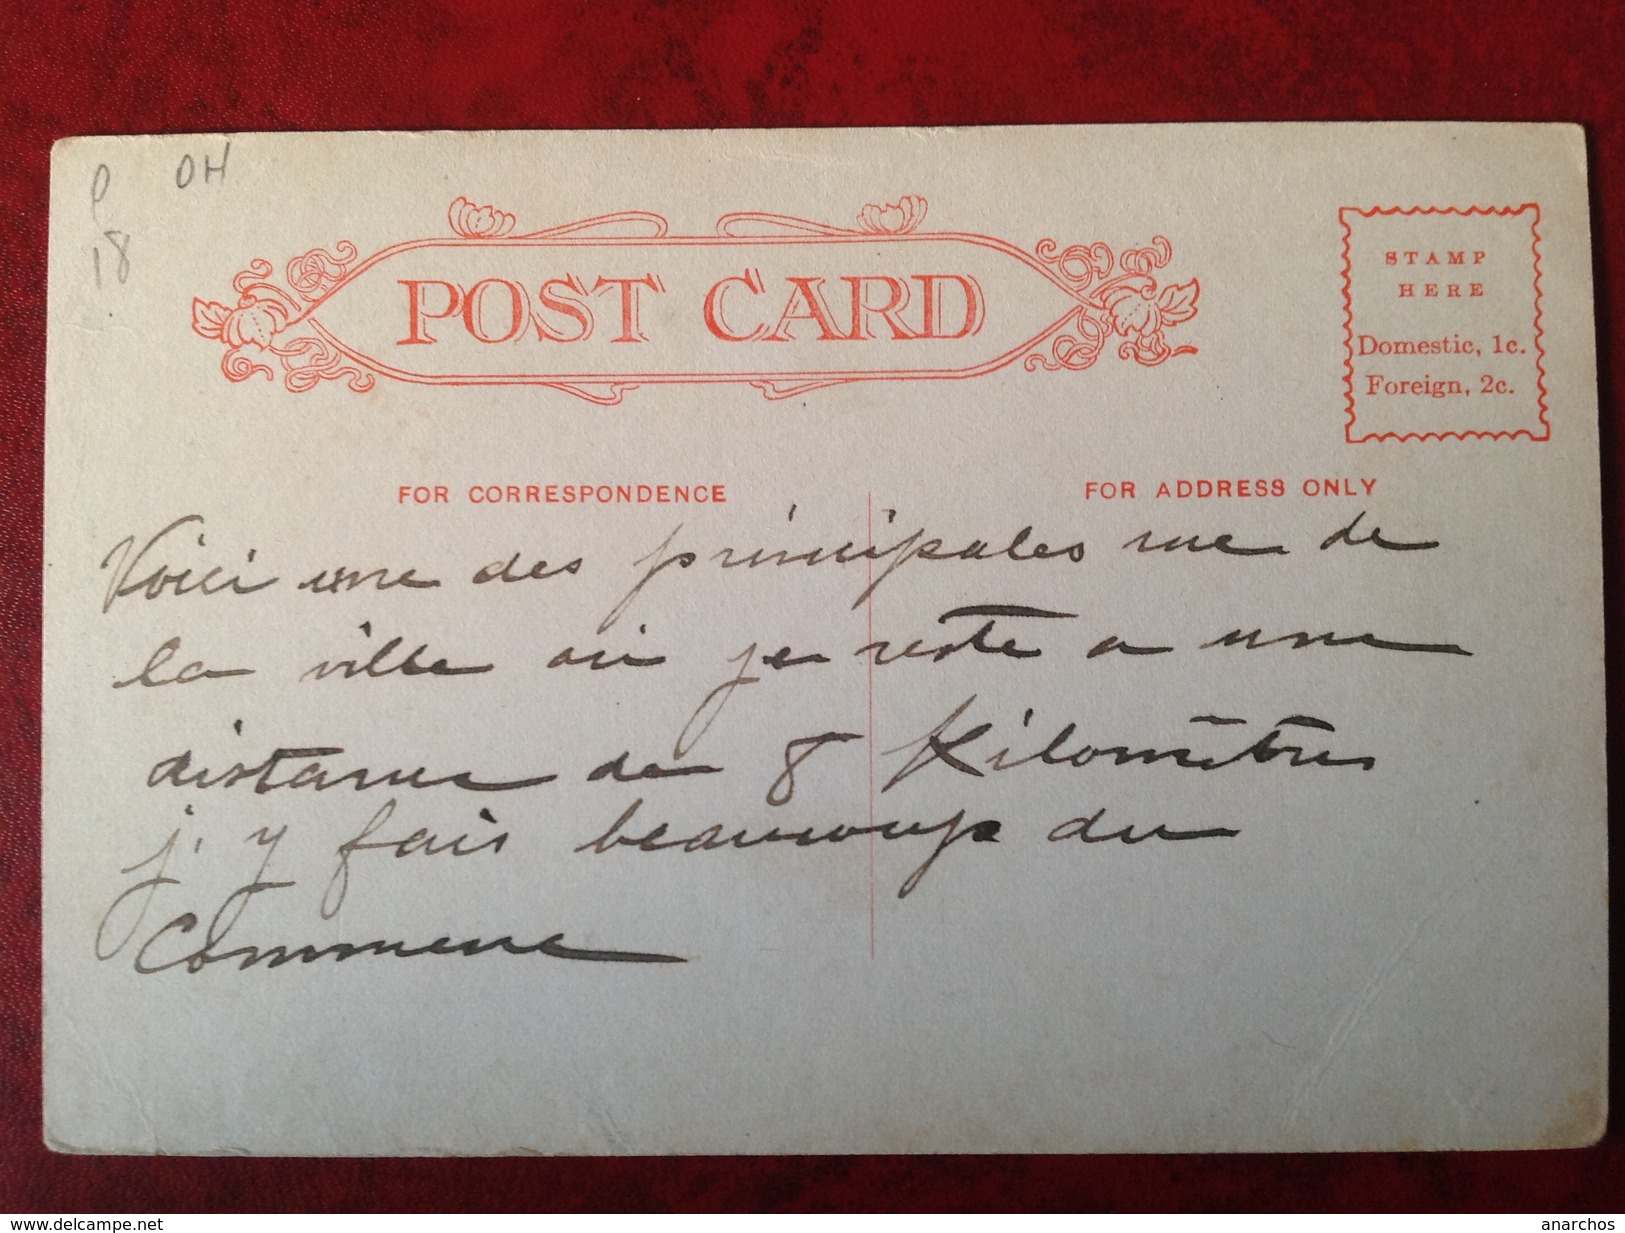 P OH
18
POST CARD
STAMP
HERE
Domestic, 1c.
Foreign, 2c.
FOR CORRESPONDENCE
FOR ADDRESS ONLY
Voici une des principales rue de
la ville ou je reste a une
distance de 8 Kilomètres
j'y fais beaucoup du
Commerce
www.delcampe.net
anarchos